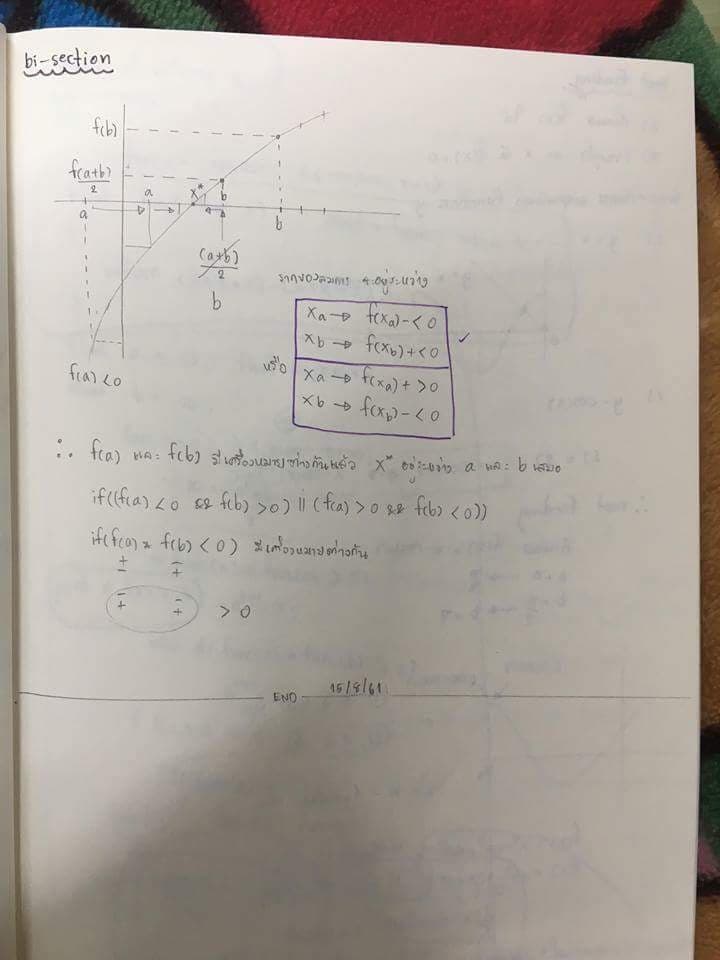 bi-section
f(b)
f(a+b)
2
a
a
x*
b
b
(a+b)
2
b
f(a) < 0
รากของสมการ จะอยู่ระหว่าง
xa → f(xa) - < 0
xb → f(xb) + < 0
หรือ
xa → f(xa) + > 0
xb → f(xb) - < 0
∴ f(a) และ f(b) มีเครื่องหมายต่างกันแล้ว x* อยู่ระหว่าง a และ b เสมอ
if((f(a) < 0 && f(b) > 0) || (f(a) > 0 && f(b) < 0))
if(f(a) * f(b) < 0) มีเครื่องหมายต่างกัน
+ -
- +
- -
+ + > 0
END 15/8/61